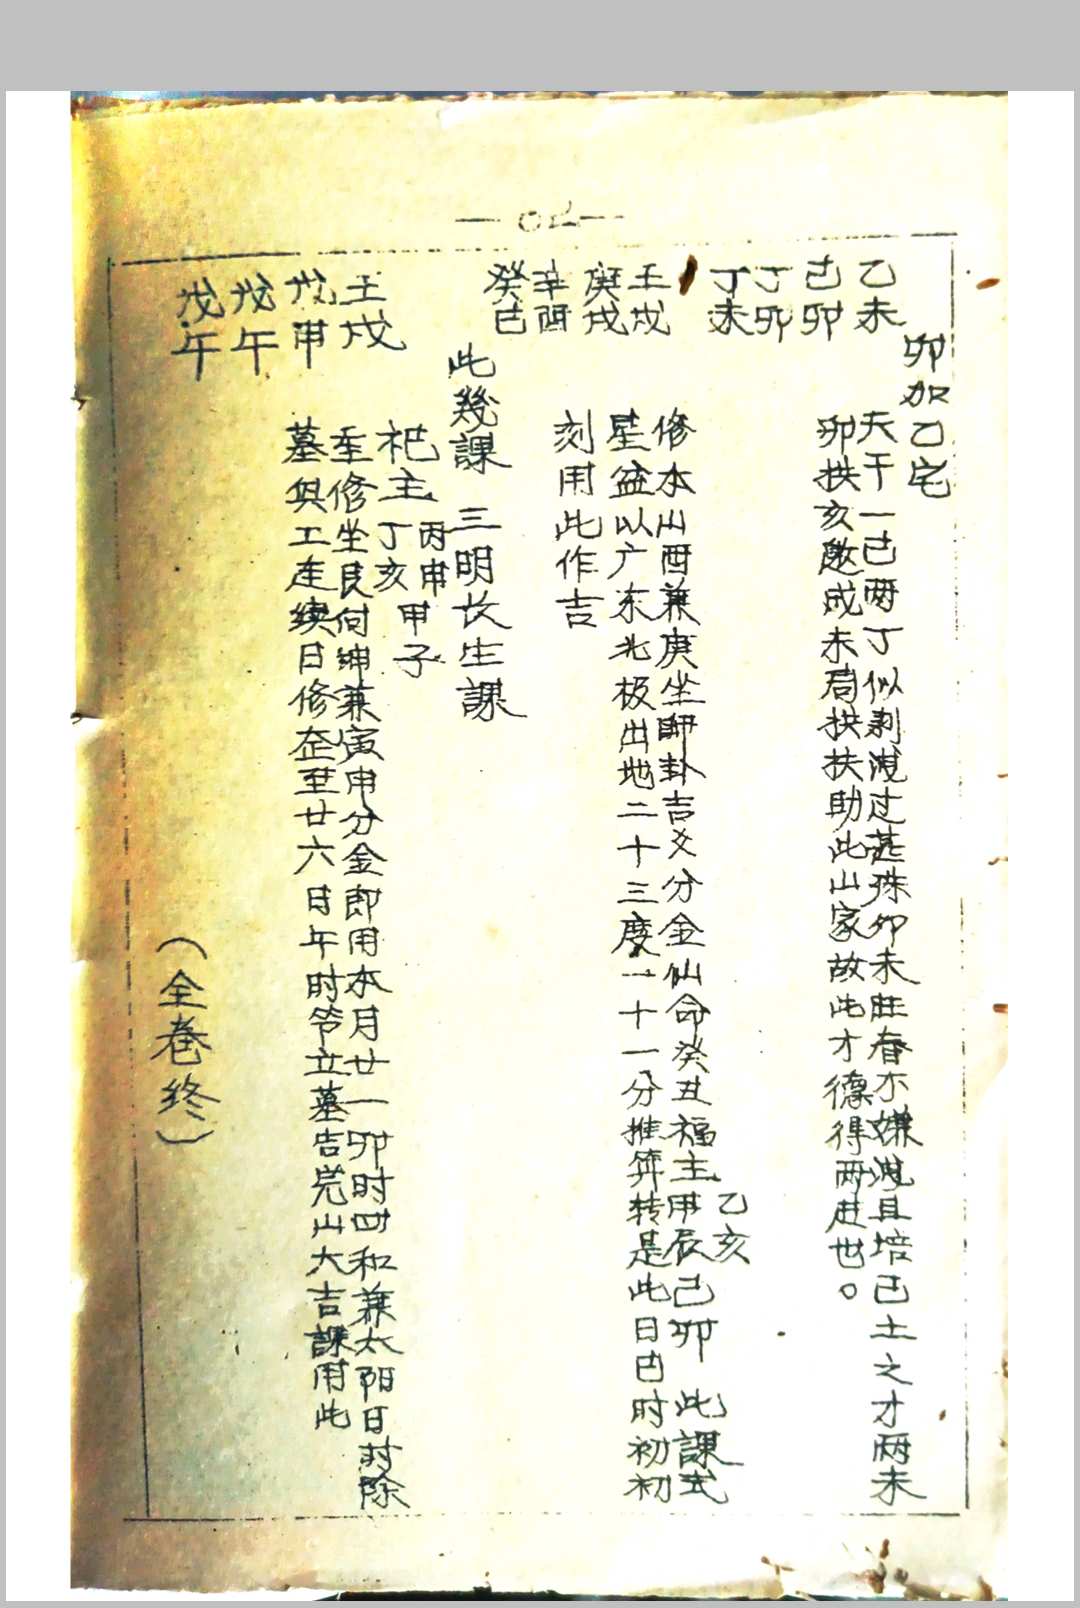 卯加乙宅
乙未
己卯
丁卯
丁未
天干一己两丁似剥洩过甚殊卯未旺春亦嫌洩且培己土之才两未
卯拱亥邀成未局拱扶助此山家故此才德得两赴也。
壬戌
庚戌
辛酉
癸巳
乙亥
修本山酉兼庚坐卦吉爻分金仙命癸丑福主甲辰己卯 此課式
星盆以广东北极出地二十三度一十一分推算转是此日巳时初初
刻用此作吉
此幾課 三明长生課
壬戌
戊申
戊午
戊午
丙申甲子
祀主丁亥
至修坐艮向坤兼寅申分金即用本月廿一卯时四和兼太阳日时除
墓兴工连续日修至廿六日午时立墓吉山大吉課用此
(全卷终)